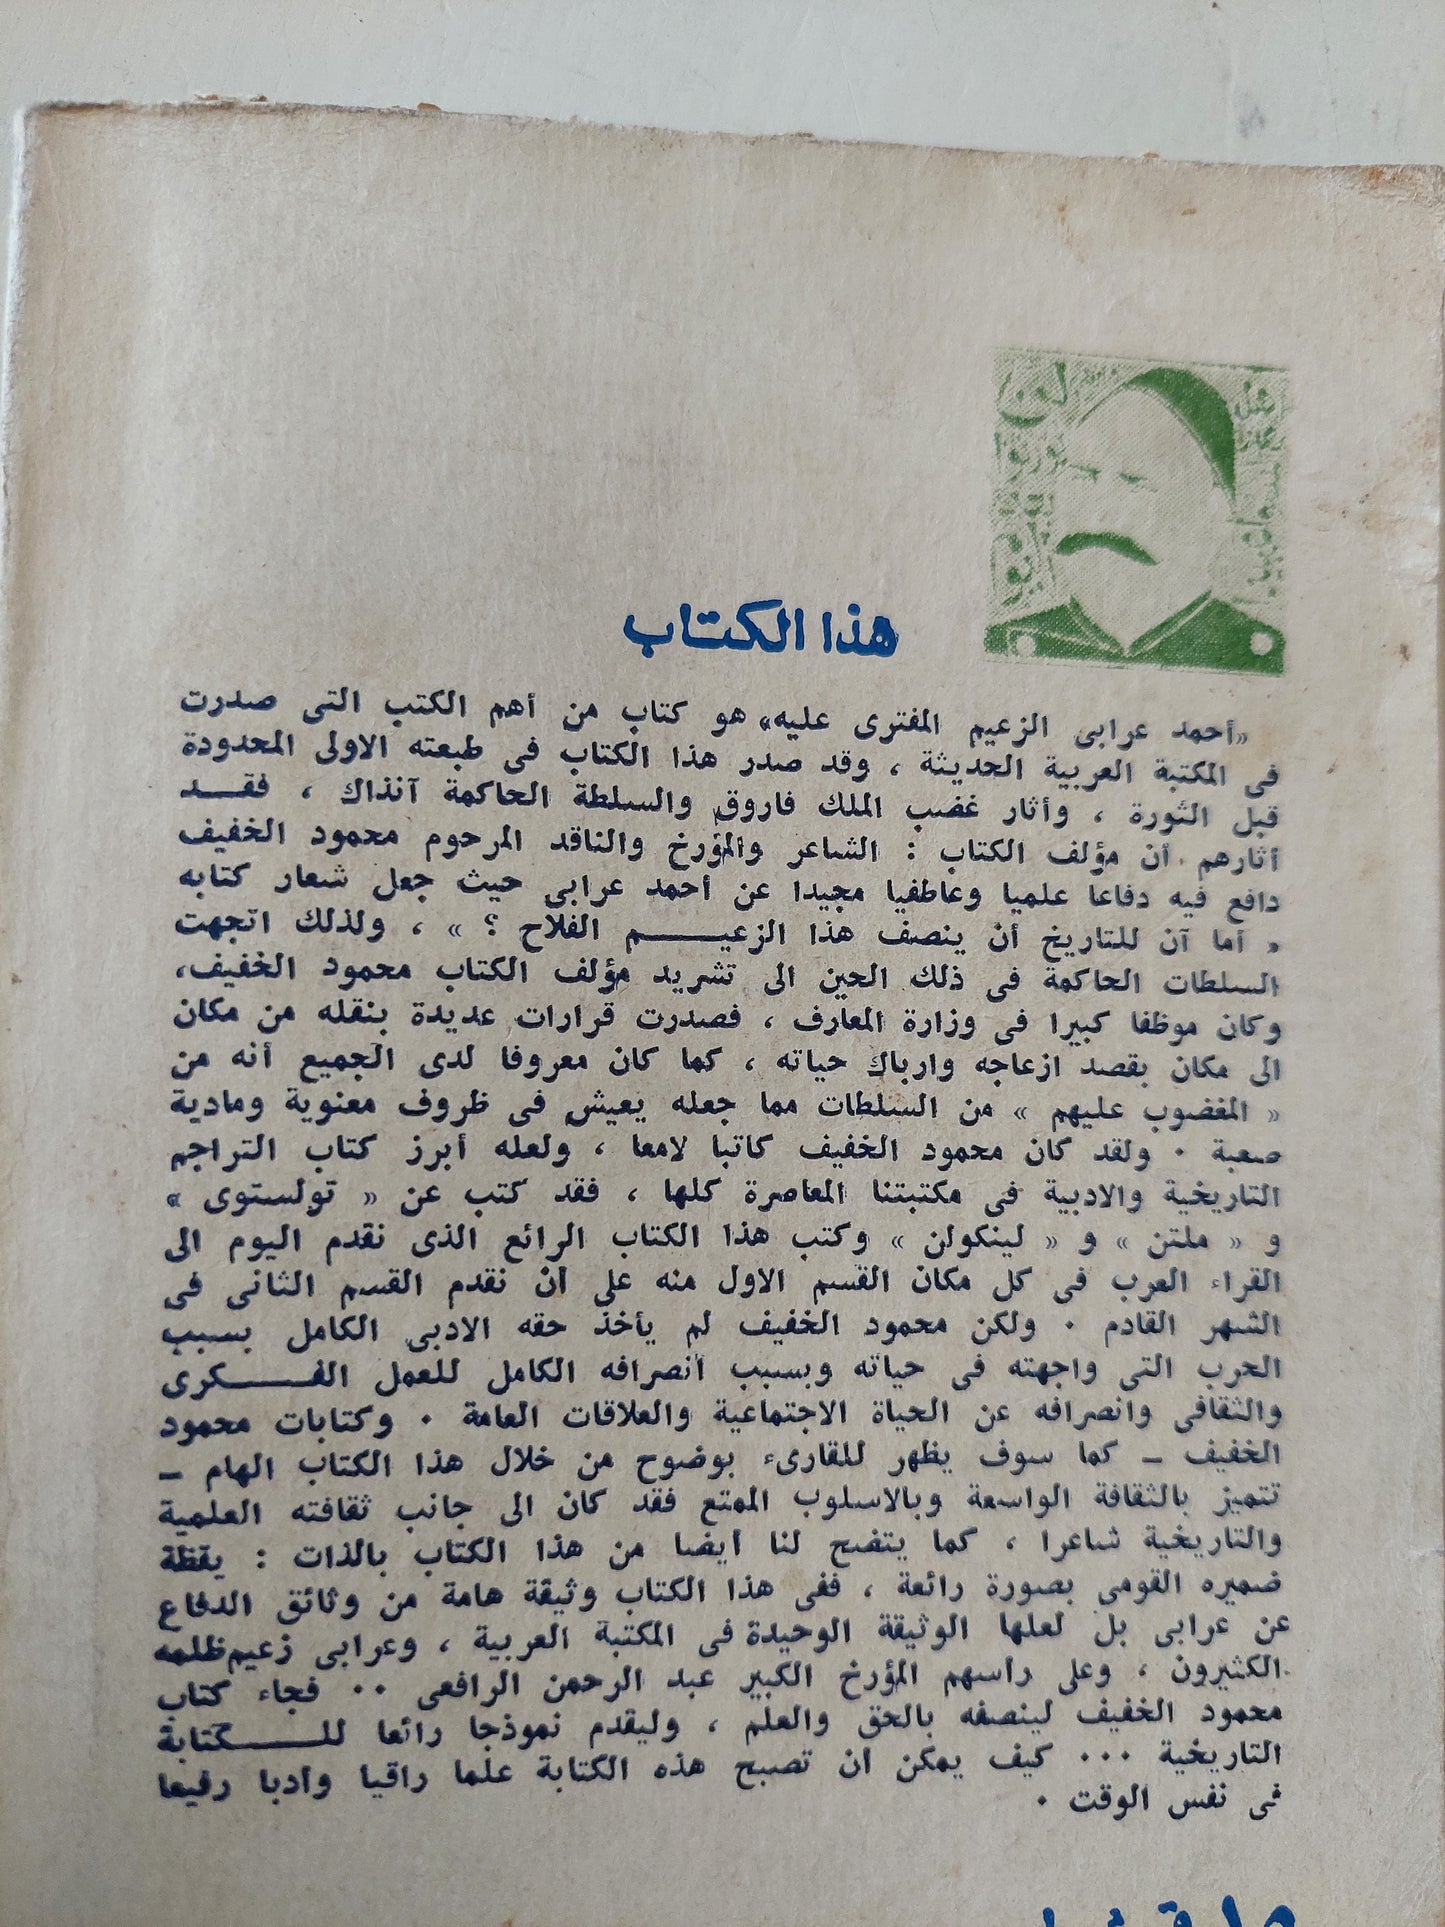 هذا الكتاب
«أحمد عرابى الزعيم المفترى عليه» هو كتاب من أهم الكتب التى صدرت
فى المكتبة العربية الحديثة ، وقد صدر هذا الكتاب فى طبعته الاولى المحدودة
قبل الثورة ، وأثار غضب الملك فاروق والسلطة الحاكمة آنذاك ، فقد
أثارهم أن مؤلف الكتاب : الشاعر والمؤرخ والناقد المرحوم محمود الخفيف
دافع فيه دفاعا علميا وعاطفيا مجيدا عن أحمد عرابى حيث جعل شعار كتابه
« أما آن للتاريخ أن ينصف هذا الزعيم الفلاح ؟ » ، ولذلك اتجهت
السلطات الحاكمة فى ذلك الحين الى تشريد مؤلف الكتاب محمود الخفيف،
وكان موظفا كبيرا فى وزارة المعارف ، فصدرت قرارات عديدة بنقله من مكان
الى مكان بقصد ازعاجه وارباك حياته ، كما كان معروفا لدى الجميع أنه من
« المغضوب عليهم » من السلطات مما جعله يعيش فى ظروف معنوية ومادية
صعبة . ولقد كان محمود الخفيف كاتبا لامعا ، ولعله أبرز كتاب التراجم
التاريخية والادبية فى مكتبتنا المعاصرة كلها ، فقد كتب عن « تولستوى »
و « ملتن » و « لينكولن » وكتب هذا الكتاب الرائع الذى نقدم اليوم الى
القراء العرب فى كل مكان القسم الاول منه على أن نقدم القسم الثانى فى
الشهر القادم . ولكن محمود الخفيف لم يأخذ حقه الادبى الكامل بسبب
الحرب التى واجهته فى حياته وبسبب انصرافه الكامل للعمل الفكرى
والثقافى وانصرافه عن الحياة الاجتماعية والعلاقات العامة . وكتابات محمود
الخفيف – كما سوف يظهر للقارىء بوضوح من خلال هذا الكتاب الهام –
تتميز بالثقافة الواسعة وبالاسلوب الممتع فقد كان الى جانب ثقافته العلمية
والتاريخية شاعرا ، كما يتضح لنا أيضا من هذا الكتاب بالذات : يقظة
ضميره القومى بصورة رائعة ، ففى هذا الكتاب وثيقة هامة من وثائق الدفاع
عن عرابى بل لعلها الوثيقة الوحيدة فى المكتبة العربية ، وعرابى زعيم ظلمه
الكثيرون ، وعلى رأسهم المؤرخ الكبير عبد الرحمن الرافعى .. فجاء كتاب
محمود الخفيف لينصفه بالحق والعلم ، وليقدم نموذجا رائعا للكتابة
التاريخية ... كيف يمكن أن تصبح هذه الكتابة علما راقيا وأدبا رفيعا
فى نفس الوقت .